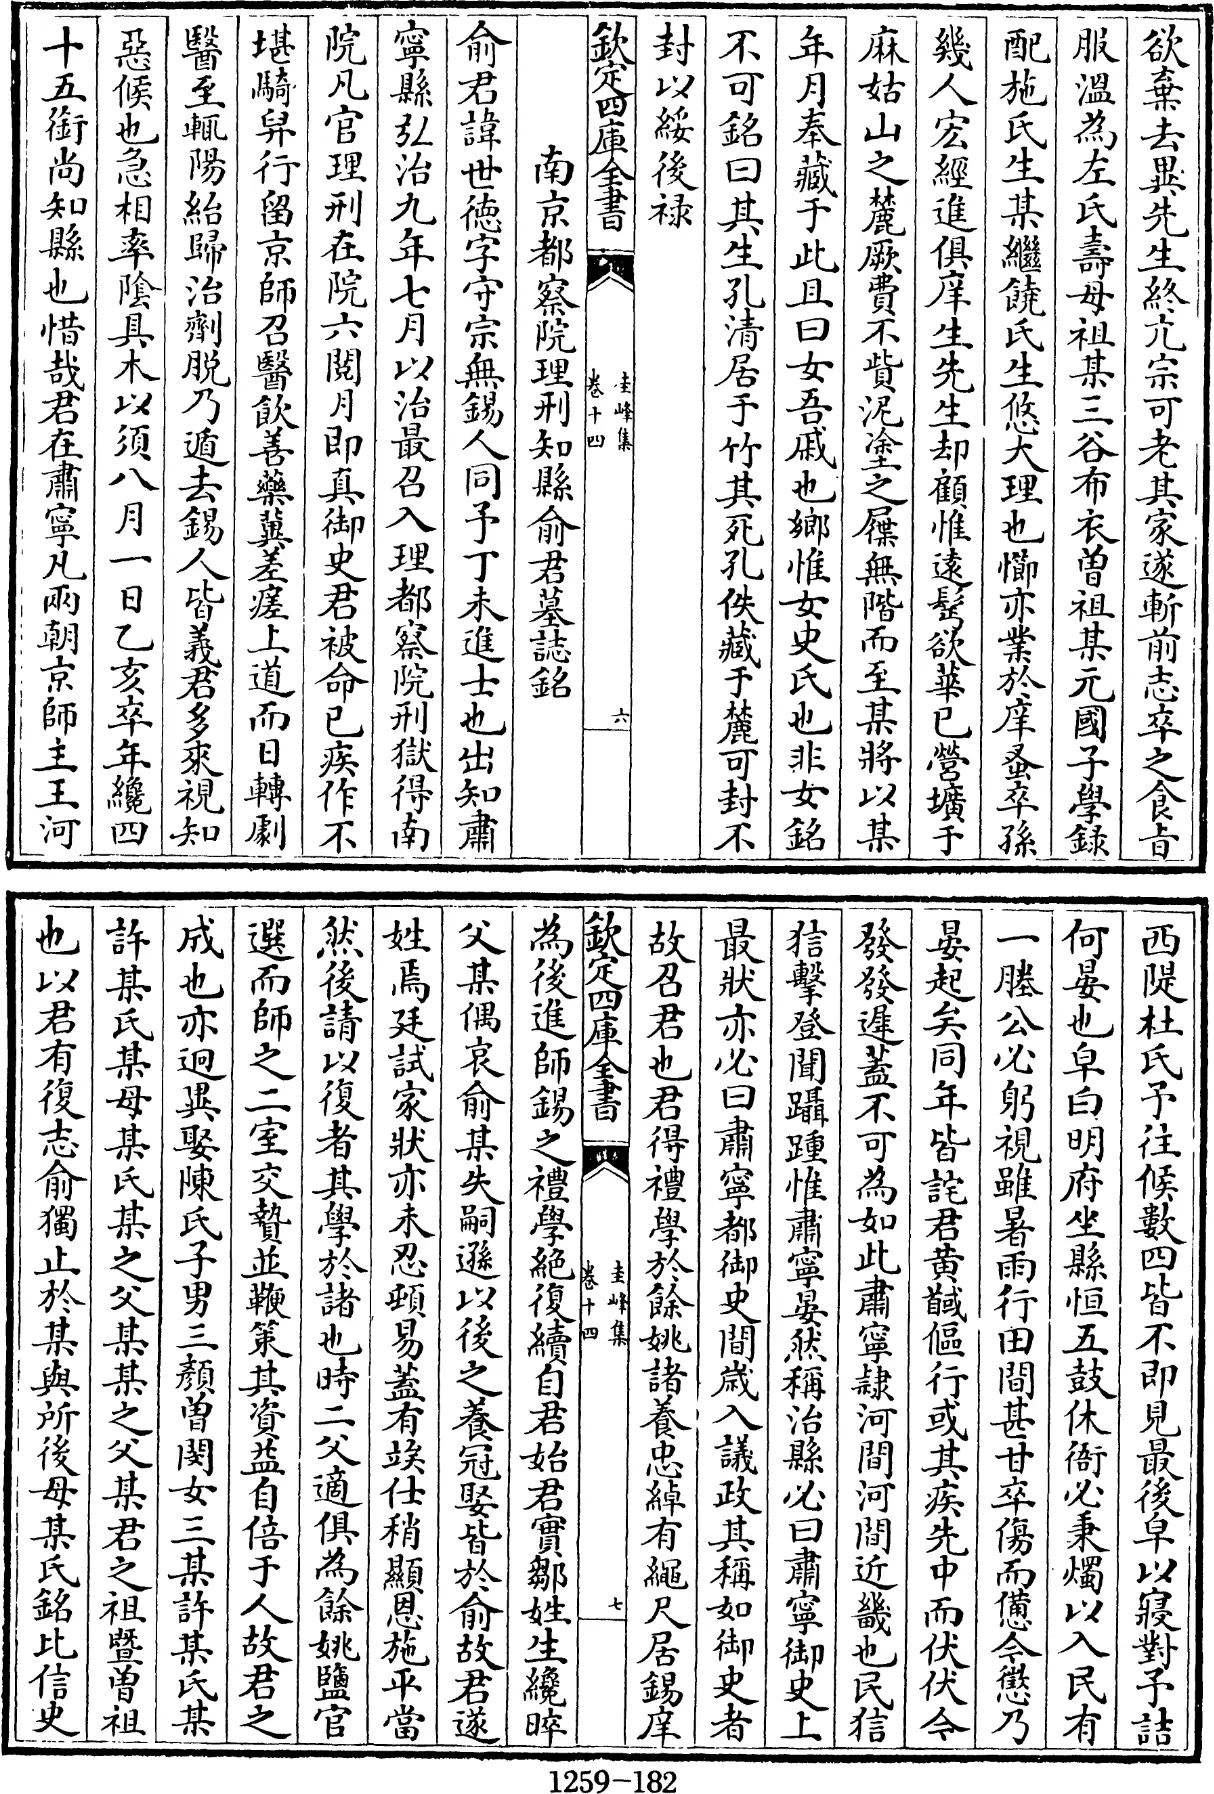 欲棄去異先生終亢宗可老其家遂斬前志卒之食㫖
服溫為左氏壽母祖某三谷布衣曽祖某元國子學録
配施氏生某繼饒氏生悠大理也懰亦業於庠蚤卒孫
幾人宏經進俱庠生先生却顧惟逺髩欲華已營壙于
麻姑山之麓厥費不貲泥塗之屧無階而至某將以某
年月奉藏于此且曰女吾戚也鄉惟女史氏也非女銘
不可銘曰其生孔清居于竹其死孔佚藏于麓可封不
封以綏後禄
欽定四庫全書
圭峰集
卷十四
六
南京都察院理刑知縣俞君墓誌銘
俞君諱世徳字守宗無錫人同予丁未進士也出知肅
寧縣弘治九年七月以治最召入理都察院刑獄得南
院凡官理刑在院六閱月即真御史君被命已疾作不
堪騎舁行留京師召醫飲善藥冀差瘥上道而日轉劇
醫至輒陽紿歸治劑脱乃遁去錫人皆義君多來視知
惡候也急相率隂具木以須八月一日乙亥卒年纔四
十五銜尚知縣也惜哉君在肅寧凡兩朝京師主王河
西隄杜氏予往候數四皆不即見最後皁以寢對予詰
何晏也皁白明府坐縣恒五鼓休衙必秉燭以入民有
一塍公必躬視雖暑雨行田間甚甘卒傷而憊今懲乃
晏起矣同年皆詫君黄馘傴行或其疾先中而伏伏今
發發遲蓋不可為如此肅寧隷河間河間近畿也民信
信擊登聞躡踵惟肅寧晏然稱治縣必曰肅寧御史上
最狀亦必曰肅寧都御史間歲入議政其稱如御史者
故召君也君得禮學於餘姚諸養忠綽有繩尺居錫庠
欽定四庫全書
圭峰集
卷十四
七
為後進師錫之禮學絶復續自君始君實鄒姓生纔晬
父某偶哀俞某失嗣遜以後之養冠娶皆於俞故君遂
姓焉廷試家狀亦未忍頓易蓋有竢仕稍顯恩施平當
然後請以復者其學於諸也時二父適俱為餘姚鹽官
選而師之二室交贄並鞭策其資益自倍于人故君之
成也亦迥異娶陳氏子男三顏曽閔女三某許某氏某
許某氏某母某氏某之父某某之父某君之祖暨曽祖
也以君有復志俞獨止於某與所後母某氏銘比信史
1259-182